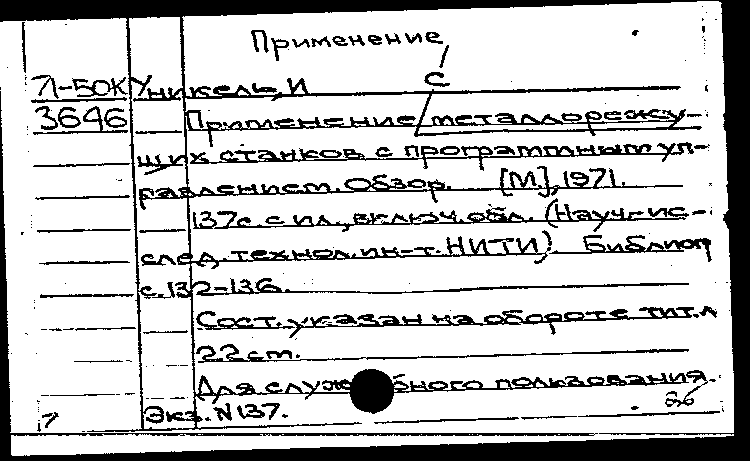 Применение
С
71-БОК Уникель, И
3646 Применение металлорежу-
щих станков с программным уп-
равлением. Обзор. [М.], 1971.
137с. с ил., включ. обл. (Науч.-ис-
след. технол. ин-т. НИТИ). Библиогр
с. 132-136.
Сост. указан на обороте тит. л
22 см.
Для служебного пользования.
Экз. N 137.
26